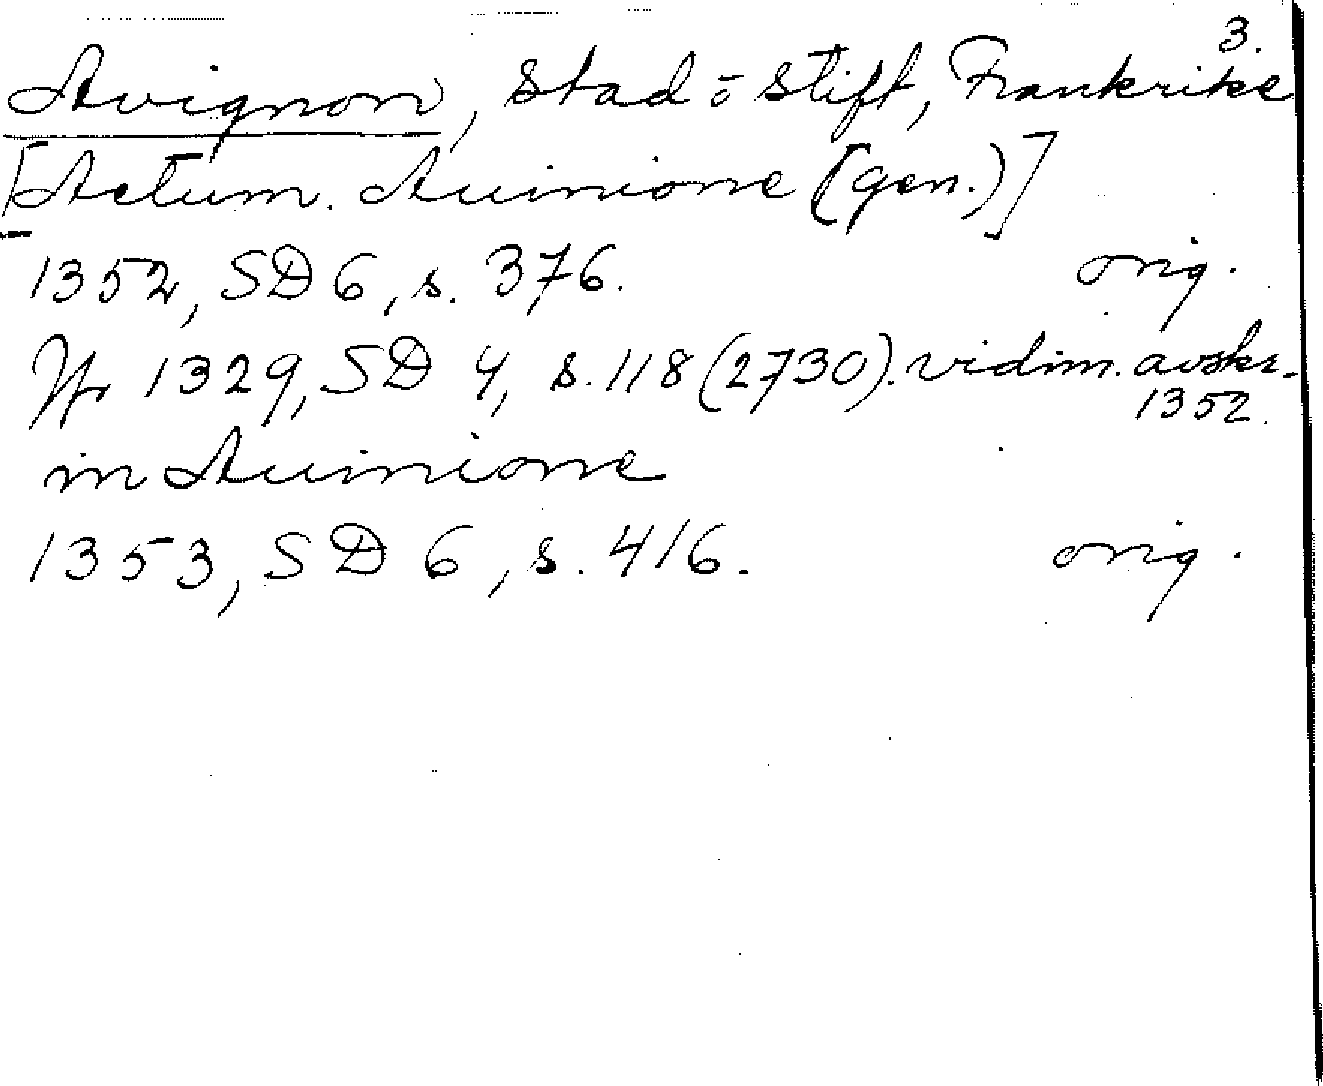 3.
Avignon, stad o stift, Frankrike
[Actum. Auinione (gen.)]
1352, SD 6, s. 376. orig.
1329, SD 4, s. 118 (2730). vidim. avskr.
1352.
in Auinione
1353, SD 6, s. 416. orig.